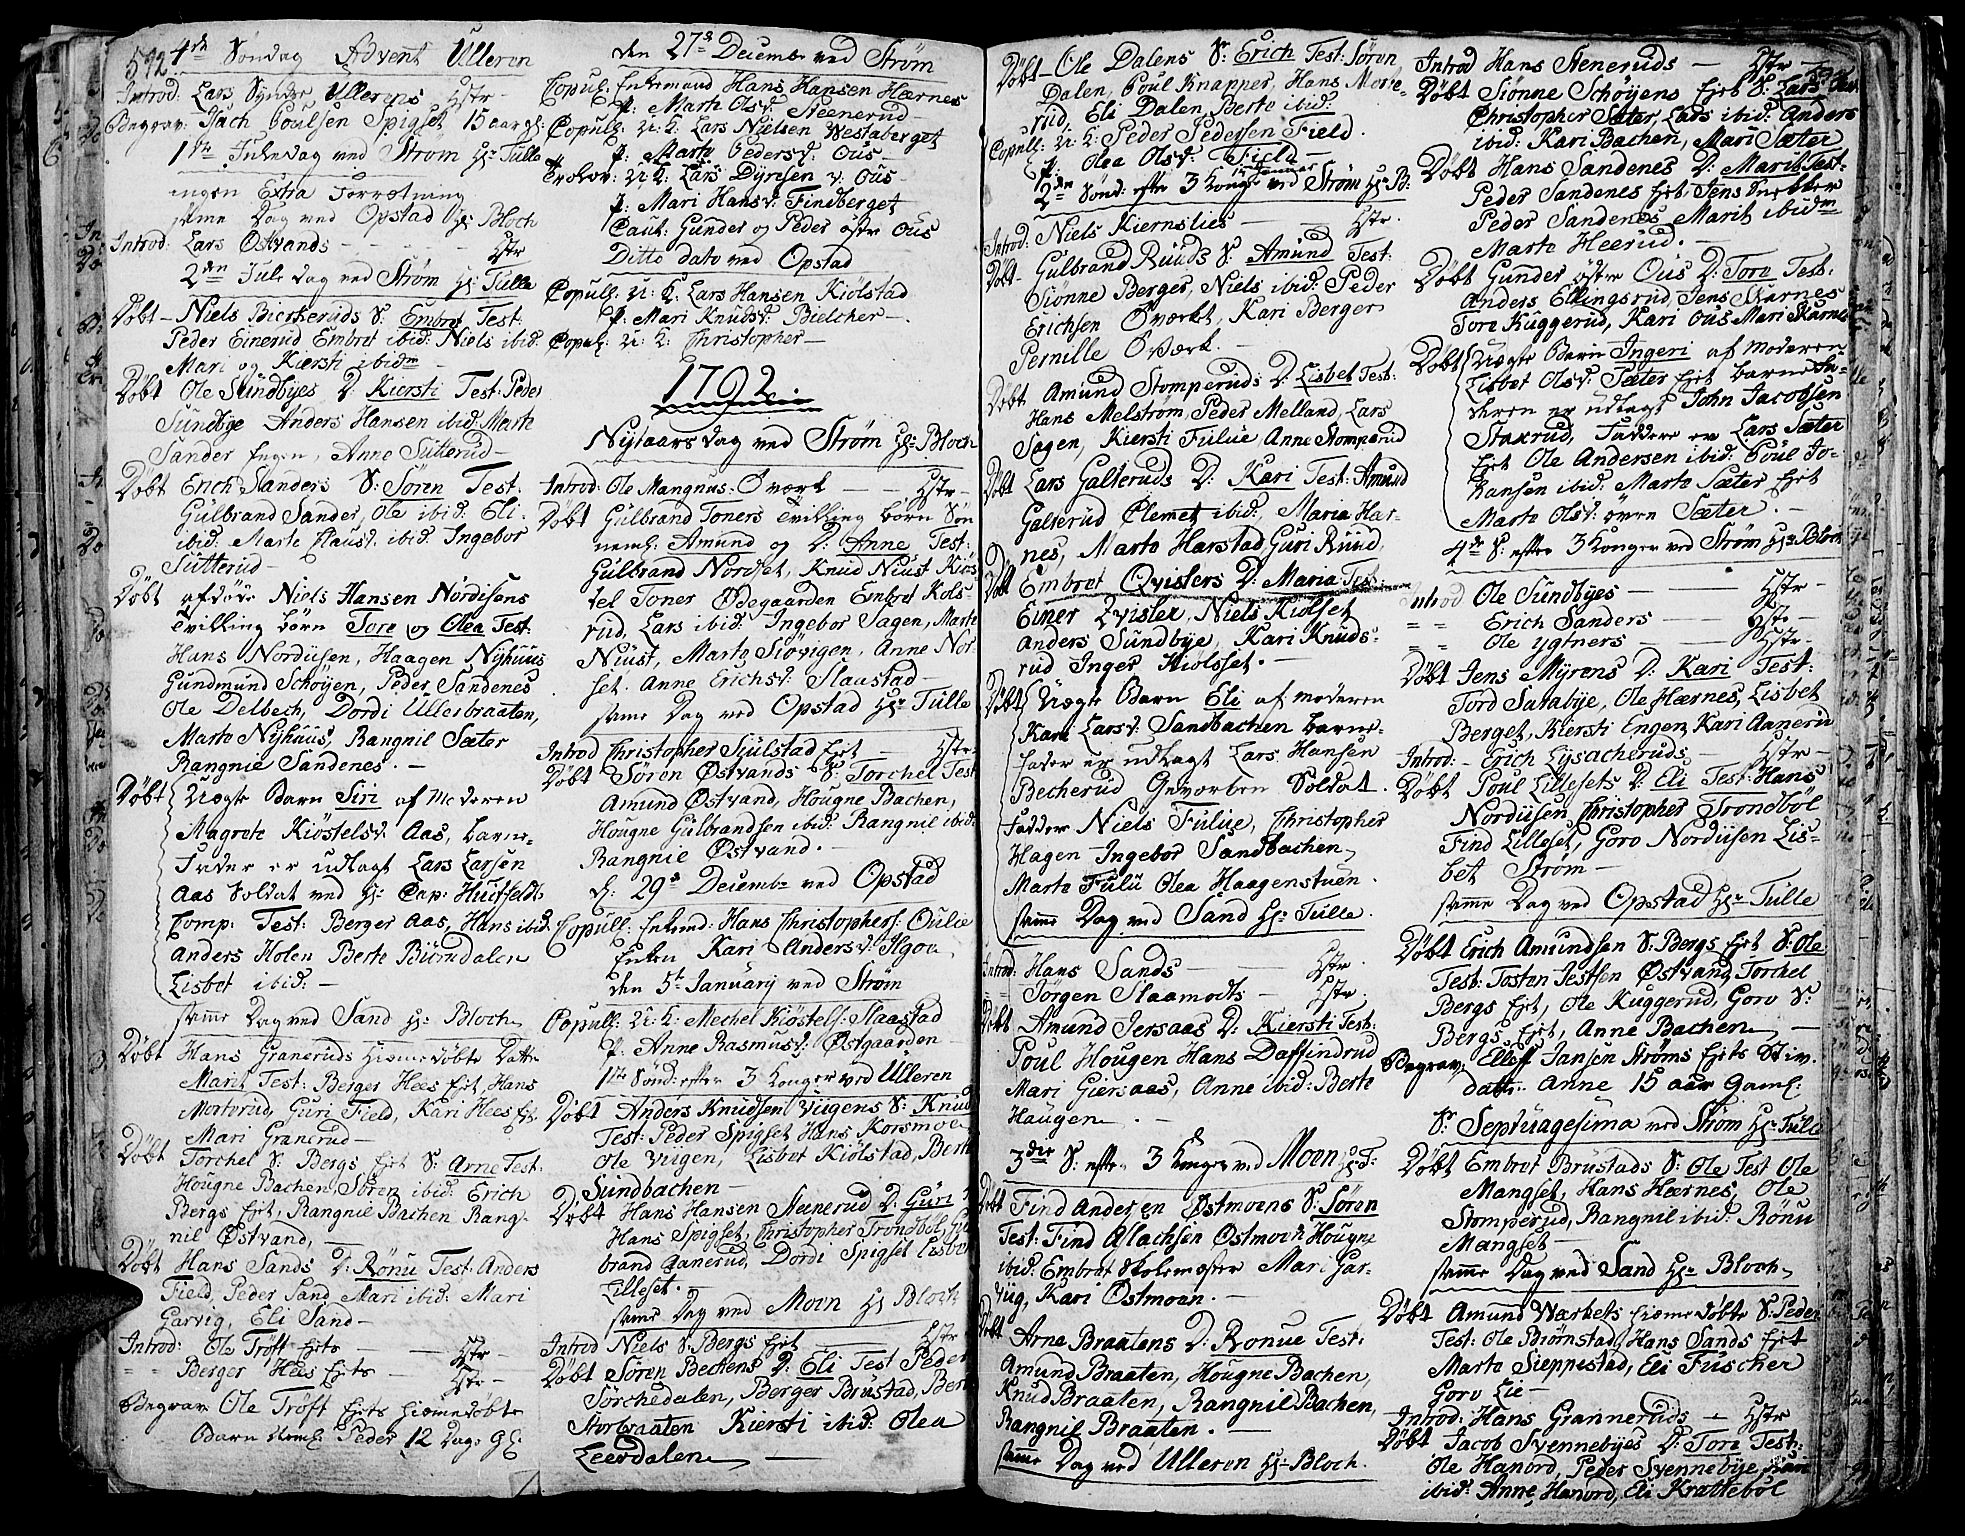 592 4de Søndag Advent Ulleren
Introd: Lars Synder Ullerens Hstr
Begrav: Isach Poulsen Spigset 15 aar gl:
1ste Juledag ved Strøm Hr Tulle
ingen Extra Forretning
same Dag ved Opstad Hr Bloch
Introd: Lars Østvands Hstr
2den Jule Dag ved Strøm Hr Tulle
Døbt Niels Bierkeruds S: Embret Test:
Peder Einerud Embret ibid: Niels ibid:
Mari og Kiersti ibidm
Døbt Ole Sundbyes D: Kiersti Test: Peder
Sundbye Anders Hansen ibid: Marte
Sander Engen, Anne Sutterud
Døbt Erich Sanders S: Søren Test:
Gulbrand Sander, Ole ibid: Eli
ibid: Marte Clausd: ibid: Ingebor
Sutterud
Døbt afdøde Niels Hansen Nordisens
Tvilling børn Tore og Olea Test:
Hans Nordiisen, Haagen Nyhuus
Gundmund Schøyen, Peder Sandenes
Ole Delbech, Dordi Ullerbraaten,
Marte Nyhuus, Rangnil Sæter
Rangnie Sandenes.
Døbt Uægte Barn Siri af Moderen
Magrete Kiøstelsd: Aas, barne-
Fader er udlagt Lars Larsen
Aas Soldat ved Hr Cap: Huitfeldts
Comp: Test: Berger Aas, Hans ibid:
Anders Holen Berte Biørndalen
Lisbet ibid:
same Dag ved Sand Hr Bloch
Døbt Hans Graneruds hiemedøbte Datter
Marit Test: Berger Hees Eiet, Hans
Morterud, Guri Field, Kari Hees Eie
Mari Granerud
Døbt Torchel S: Bergs Eiet S: Arne Test:
Hougne Bachen, Søren ibid: Erich
Bergs Eiet, Rangnil Bachen Rang-
nil Østvand,
Døbt Hans Sands D: Rønu Test: Anders
Field, Peder Sand, Mari ibid: Mari
Garvig, Eli Sand
Introd: Ole Trøft Eiets Hstr
" " Berger Hees Eiets Hstr
Begrav: Ole Trøft Eiets hiemedøbte
Barn Nenl: Peder 12 Dage gl:
den 27de Decembr ved Strøm
Copul: Enkemand Hans Hansen Hærnes
P: Marte Olsd: Steenerud
Copul: U: K: Lars Nielsen Westaberget
P: Marte Pedersd: Ous
Trolov: U: K: Lars Dyresen v: Ous
P: Mari Hansd: Findberget
Caut: Gunder og Peder østre Ous
Ditto dato ved Opstad
Copul: U: K: Lars Hansen Kiølstad
P: Mari Knudsd: Bielcher
Copul: U: K: Christopher
1792.
Nytaarsdag ved Strøm Hr Bloch
Introd: Ole Mangnus: Øværk Hstr
Døbt Gulbrand Toners Tvilling børn Søn
neml: Amund og D: Anne, Test:
Gulbrand Nordset, Knud Niust Kiøs-
tel Toner Ødegaarden Embret Kols-
rud, Lars ibid: Ingebor Sagen, Marte
Niust, Marte Siøvigen, Anne Nor-
set. Anne Erichsd: Slaastad
same Dag ved Opstad Hr Tulle
Introd Christopher Siulstad Eiet Hstr
Døbt Søren Østvands S: Torchel Test
Amund Østvand, Hougne Bachen,
Hougne Gulbrandsen ibid: Rangnil ibid:
Rangnie Østvand.
d: 29de Decembr ved Opstad
Copull: Enkemd: Hans Christophers: Oulie
Enken Kari Andersd: Algoen
den 5te January ved Strøm
Copull: U: K: Mechel Kiøstels: Slaastad
P: Anne Rasmusd: Østgaarden
1ste Sønd: efter 3 Konger ved Ulleren
Døbt Anders Knudsen Viigens S: Knud
Test: Peder Spigset Hans Korsmoen
Ole Viigen, Lisbet Kiølstad, Berte
Sundbachen
Døbt Hans Hansen Stenerud D: Guri
Hans Spigset, Christopher Trondbøl,
brand Aanerud, Dordi Spigset Lisbet
Lilleset.
same Dag ved Moen Hr Bloch
Introd Niels S: Bergs Eiet Hstr
Døbt Søren Bechens D: Eli Test Peder
Torchedalen, Berger Brustad, Berte
Storbraaten Kiersti ibid: Olea
Leerdalen
Døbt Ole Dalens S: Erich Test: Søren
Dalen, Poul Knapper, Hans Morte-
rud, Eli Dalen Berte ibid:
Copull: U: K: Peder Pedersen Field.
P: Olea Olsd: Field
2den Sønd: efter 3 Konger 15 Januar ved Strøm Hr B:
Introd: Niels Kiernslies Hstr.
Døbt Gulbrand Ruuds S: Amund Test:
Siønne Berger, Niels ibid: Peder
Erichsen Øværket, Kari Berger
Pernille Øværk.
Døbt Amund Stomperuds D: Lisbet Test:
Hans Melstrøm, Peder Melland, Lars
Sagen, Kiersti Fulue Anne Stomperud
Døbt Lars Galteruds D: Kari Test: Amund
Galterud Clemet ibid:, Maria Har-
nes, Marte Harstad Guri Ruud
Døbt Embret Qvislers D: Maria Test:
Einer Qvisler, Niels Kiølset
Anders Sundbye, Kari Knuds-
rud Inger Kiølsset.
Døbt Uægte Barn Eli af moderen
Kari Larsd: Sandbachen barne-
fader er udlagt Lars Hansen
Becherud Gevorben Soldat.
Faddere Niels Fulue, Christopher
Hagen Ingebor Sandbachen
Marte Fulu Olea Haagenstuen.
same Dag ved Sand Hr Tulle.
Introd: Hans Sands Hstr.
Jørgen Slaamodts Hstr.
Døbt Amund Jersaas D: Kiersti Test:
Poul Hougen Hans Daffindrud
Mari Giersaas, Anne ibid: Berte
Haugen.
3die S: efter 3 Konger ved Moen Hr T:
Døbt Find Andersen Østmoens S: Søren
Test: Find Alachsen Østmoen Hougne
ibid: Embret Skolemester Mari Gar-
viig, Kari Østmoen.
Døbt Arne Braatens D: Ronue Test:
Amund Braaten, Hougne Bachen,
Knud Braaten, Rangnil Bachen,
Rangnil Braaten.
same Dag ved Ulleren Hr Bloch.
Introd Hans Steneruds Hstr
Døbt Siønne Schøyens Eiet S: Lars Test
Christopher Sæter, Lars ibid: Anders
ibid: Kari Bachen, Mari Sæter
Døbt Hans Sandenes D: Marit Test:
Peder Sandenes Eiet, Jens Snedker
Peder Sandenes Marit ibidm
Marte Heerud.
Døbt Gunder østre Ous D: Tore Test:
Anders Ellingsrud, Jens Skarnes
Tore Kuggerud, Kari Ous Mari Skarnes
Døbt Uægte Barn Ingeri af Moderen
Lisbet Olsd: Sæter Eiet Barne Fa-
deren er udlagt John Jacobsen
Staxrud, Faddere er Lars Sæter
Eiet Ole Andersen ibid: Poul Jo-
hansen ibid: Marte Sæter Eiet
Marte Olsd: øvre Sæter.
4de S: efter 3 Konger ved Strøm Hr Bloch
Introd Ole Sundbyes Hstr
" " Erich Sanders Hstr
" " Ole Ygtners Hstr
Døbt Jens Myrens D: Kari Test:
Tord Satabye, Ole Hærnes, Lisbet
Berget, Kiersti Engen, Kari Aanerud
Introd: Erich Lysacheruds Hstr
Døbt Poul Lillesets D: Eli Test: Hans
Nordiisen, Christopher Trondbøl
Find Lilleset, Goro Nordiisen Lis-
bet Strøm
same Dag ved Opstad Hr Tulle
Døbt Erich Amundsen S: Bergs Eiet S: Ole
Test: Tosten Testsen Østvand, Torchel
Bergs Eiet, Ole Kuggerud, Goro S:
Bergs Eiet, Anne Bachen
Begrav: Ellef Jansen Strøms Eiets Stiv
datter Anne 15 aar gaml.
Sr Septuagesima ved Strøm Hr Tulle
Døbt Embret Brustads S: Ole Test Ole
Mangset, Hans Hærnes, Ole
Stomperud, Rangnil ibid: Rønu
Mangset
same Dag ved Sand Hr Bloch
Døbt Amund Wærkets hiemedøbte S: Peder
Test: Ole Biørnstad, Hans Sands Eiet
Marte Sieppestad, Eli Fuscher
Goro Lie
Introd: Hans Granneruds Hstr
Døbt Jacob Svennebyes D: Tore Test:
Ole Hanord, Peder Svennebye,
ibid: Anne Hanord, Eli Krattebøl